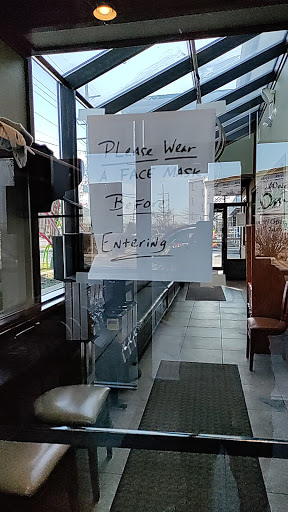 Please Wear
A FACE MASK
Before
Entering